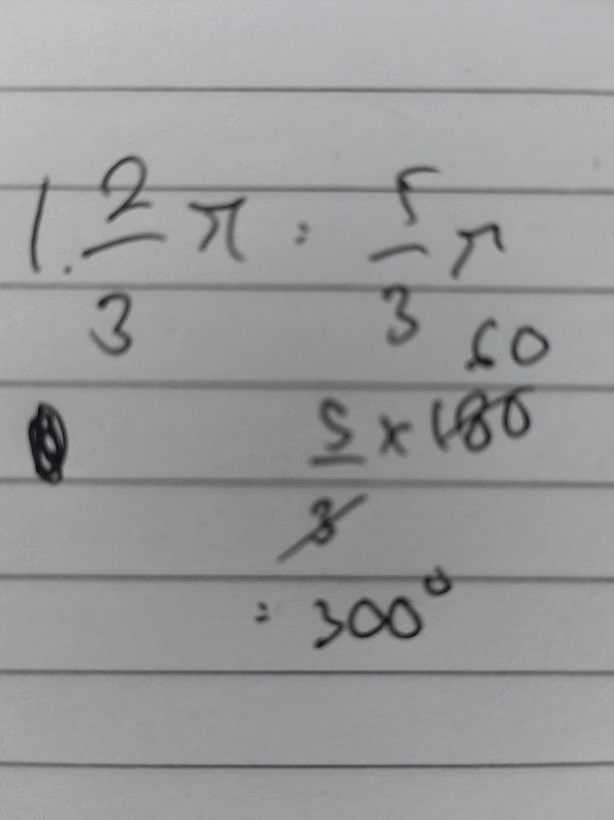 1. 2/3 π = 5/3 π
60
5/3 × 180
= 300°